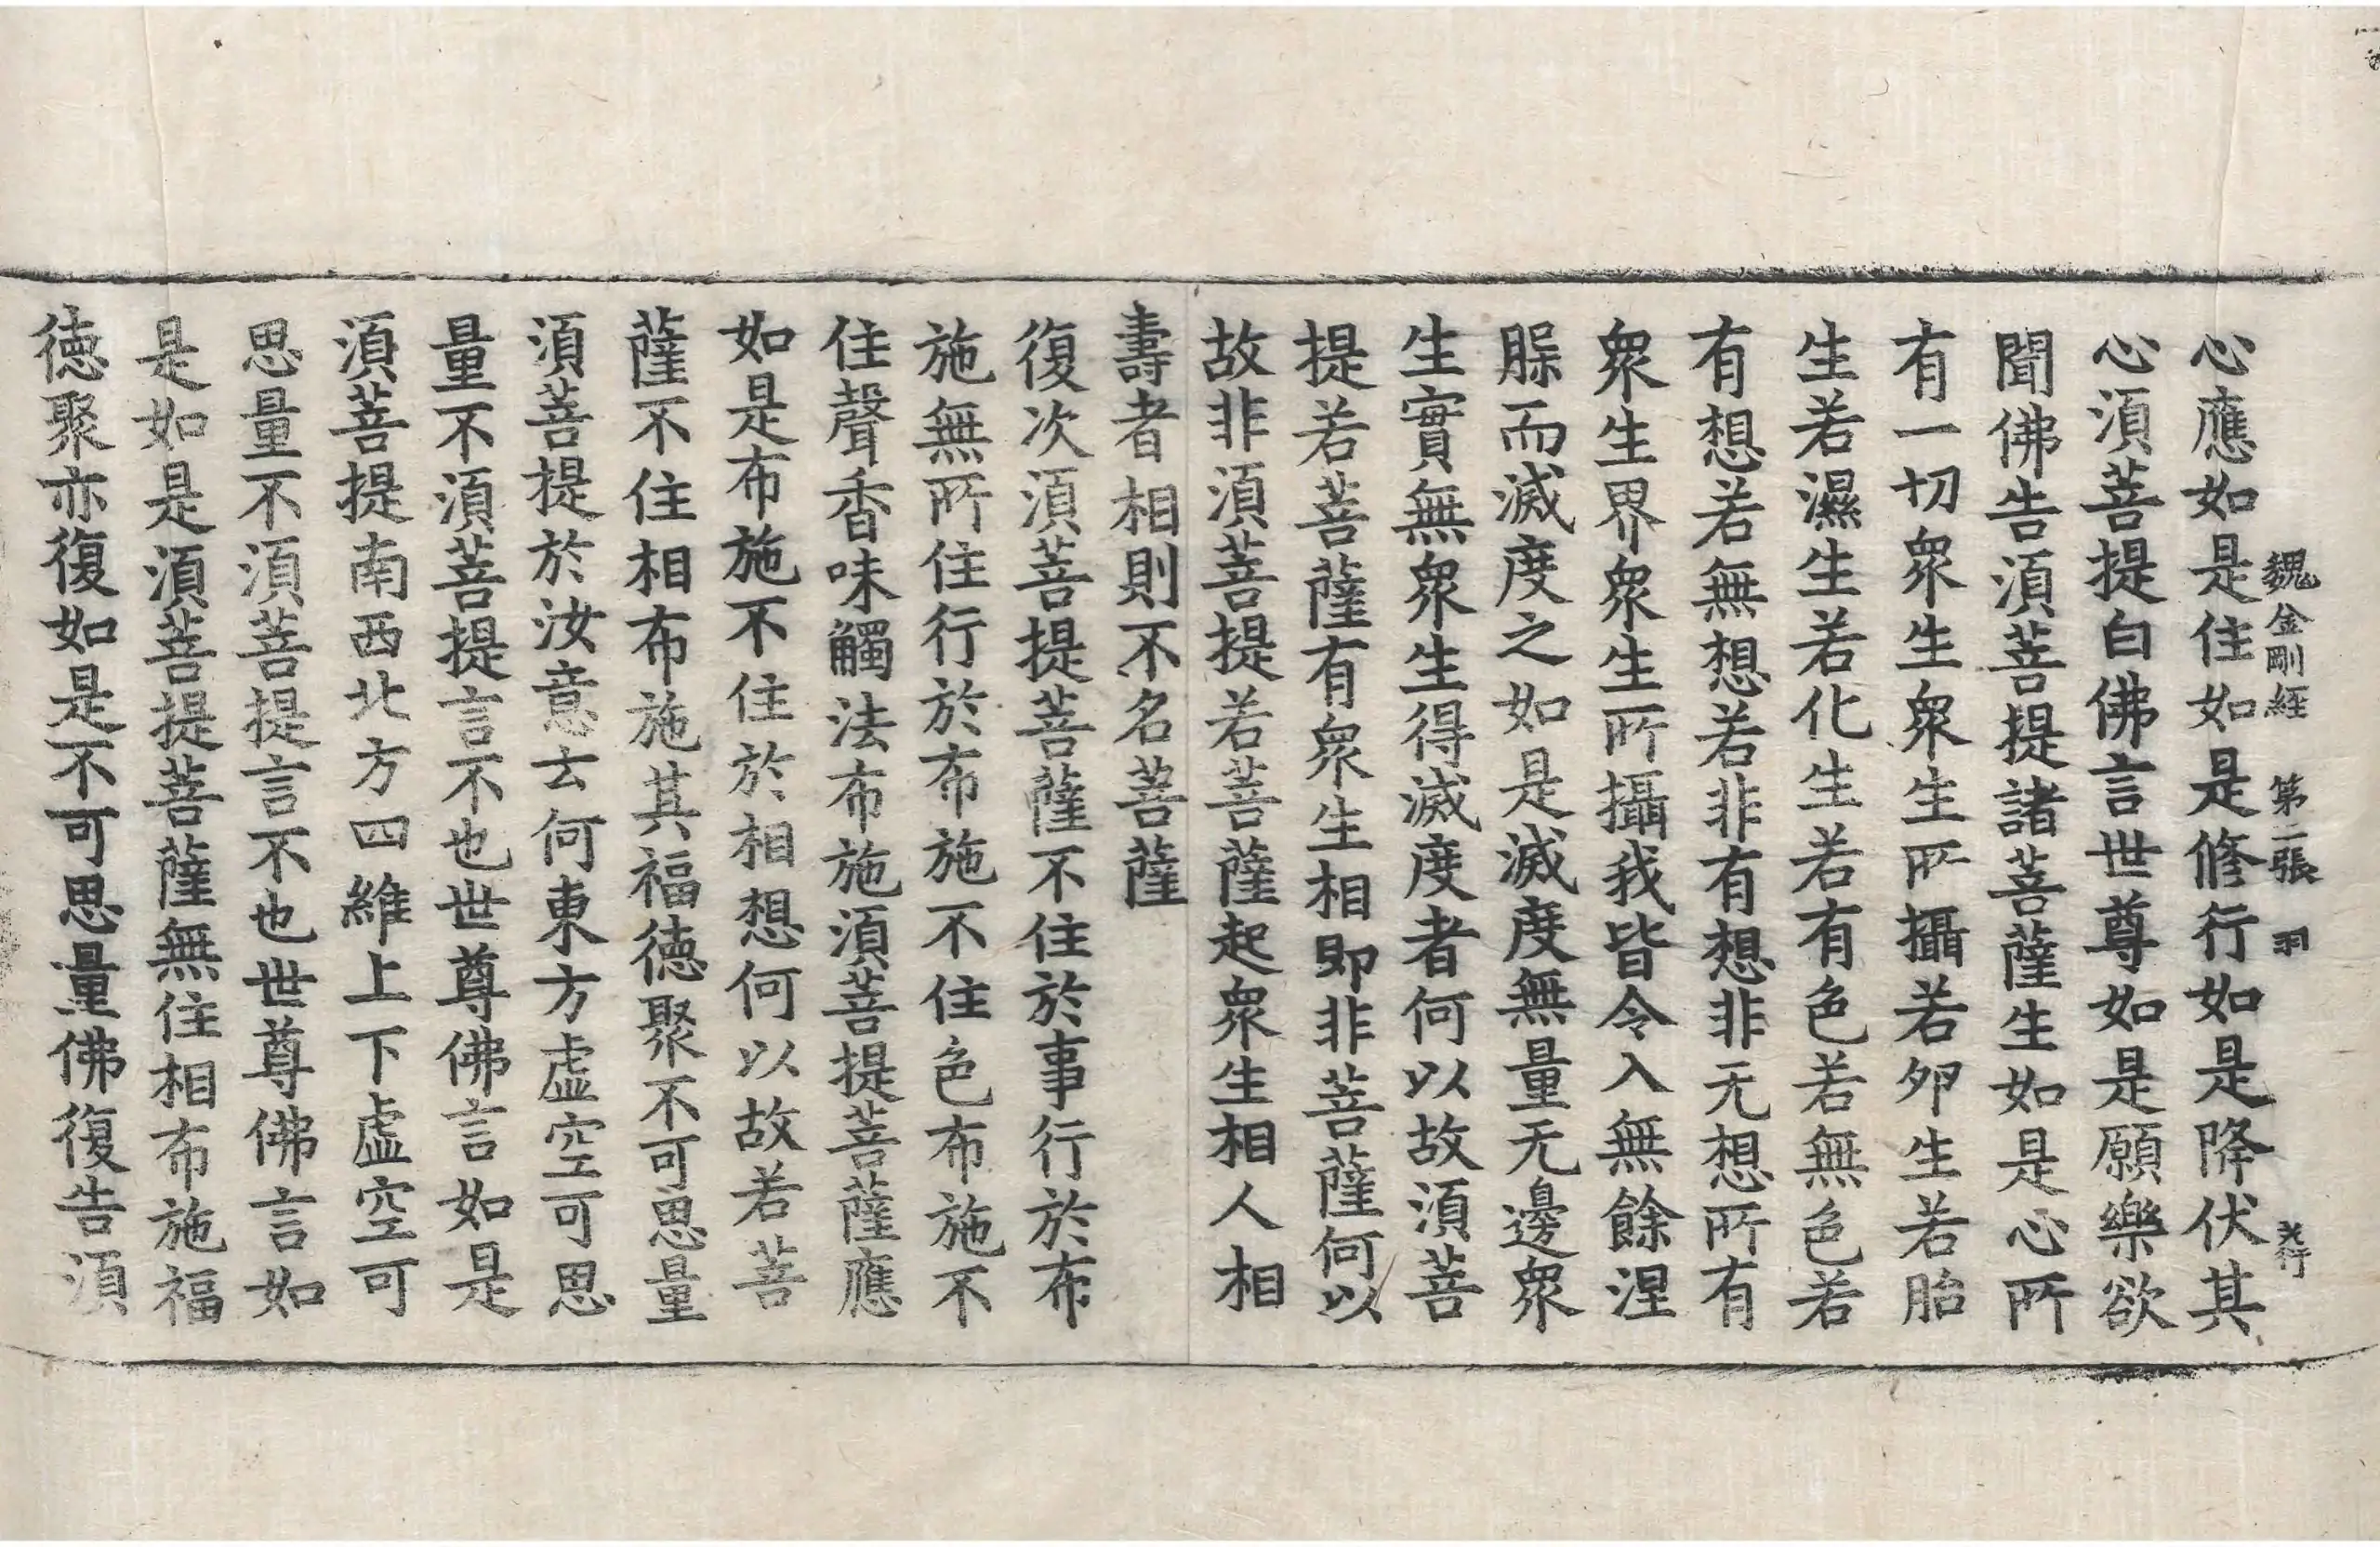 魏金剛經 第二張 羽
心應如是住如是修行如是降伏其
心湏菩提白佛言世尊如是願樂欲
聞佛告湏菩提諸菩薩生如是心所
有一切衆生衆生所攝若夘生若胎
生若濕生若化生若有色若無色若
有想若無想若非有想非无想所有
衆生界衆生所攝我皆令入無餘涅
腬而滅度之如是滅度無量无邊衆
生實無衆生得滅度者何以故湏菩
提若菩薩有衆生相即非菩薩何以
故非湏菩提若菩薩起衆生相人相
壽者相則不名菩薩
復次湏菩提菩薩不住於事行於布
施無所住行於布施不住色布施不
住聲香味觸法布施湏菩提菩薩應
如是布施不住於相想何以故若菩
薩不住相布施其福德聚不可思量
湏菩提於汝意云何東方虛空可思
量不湏菩提言不也世尊佛言如是
湏菩提南西北方四維上下虛空可
思量不湏菩提言不也世尊佛言如
是如是湏菩提菩薩無住相布施福
德聚亦復如是不可思量佛復告湏